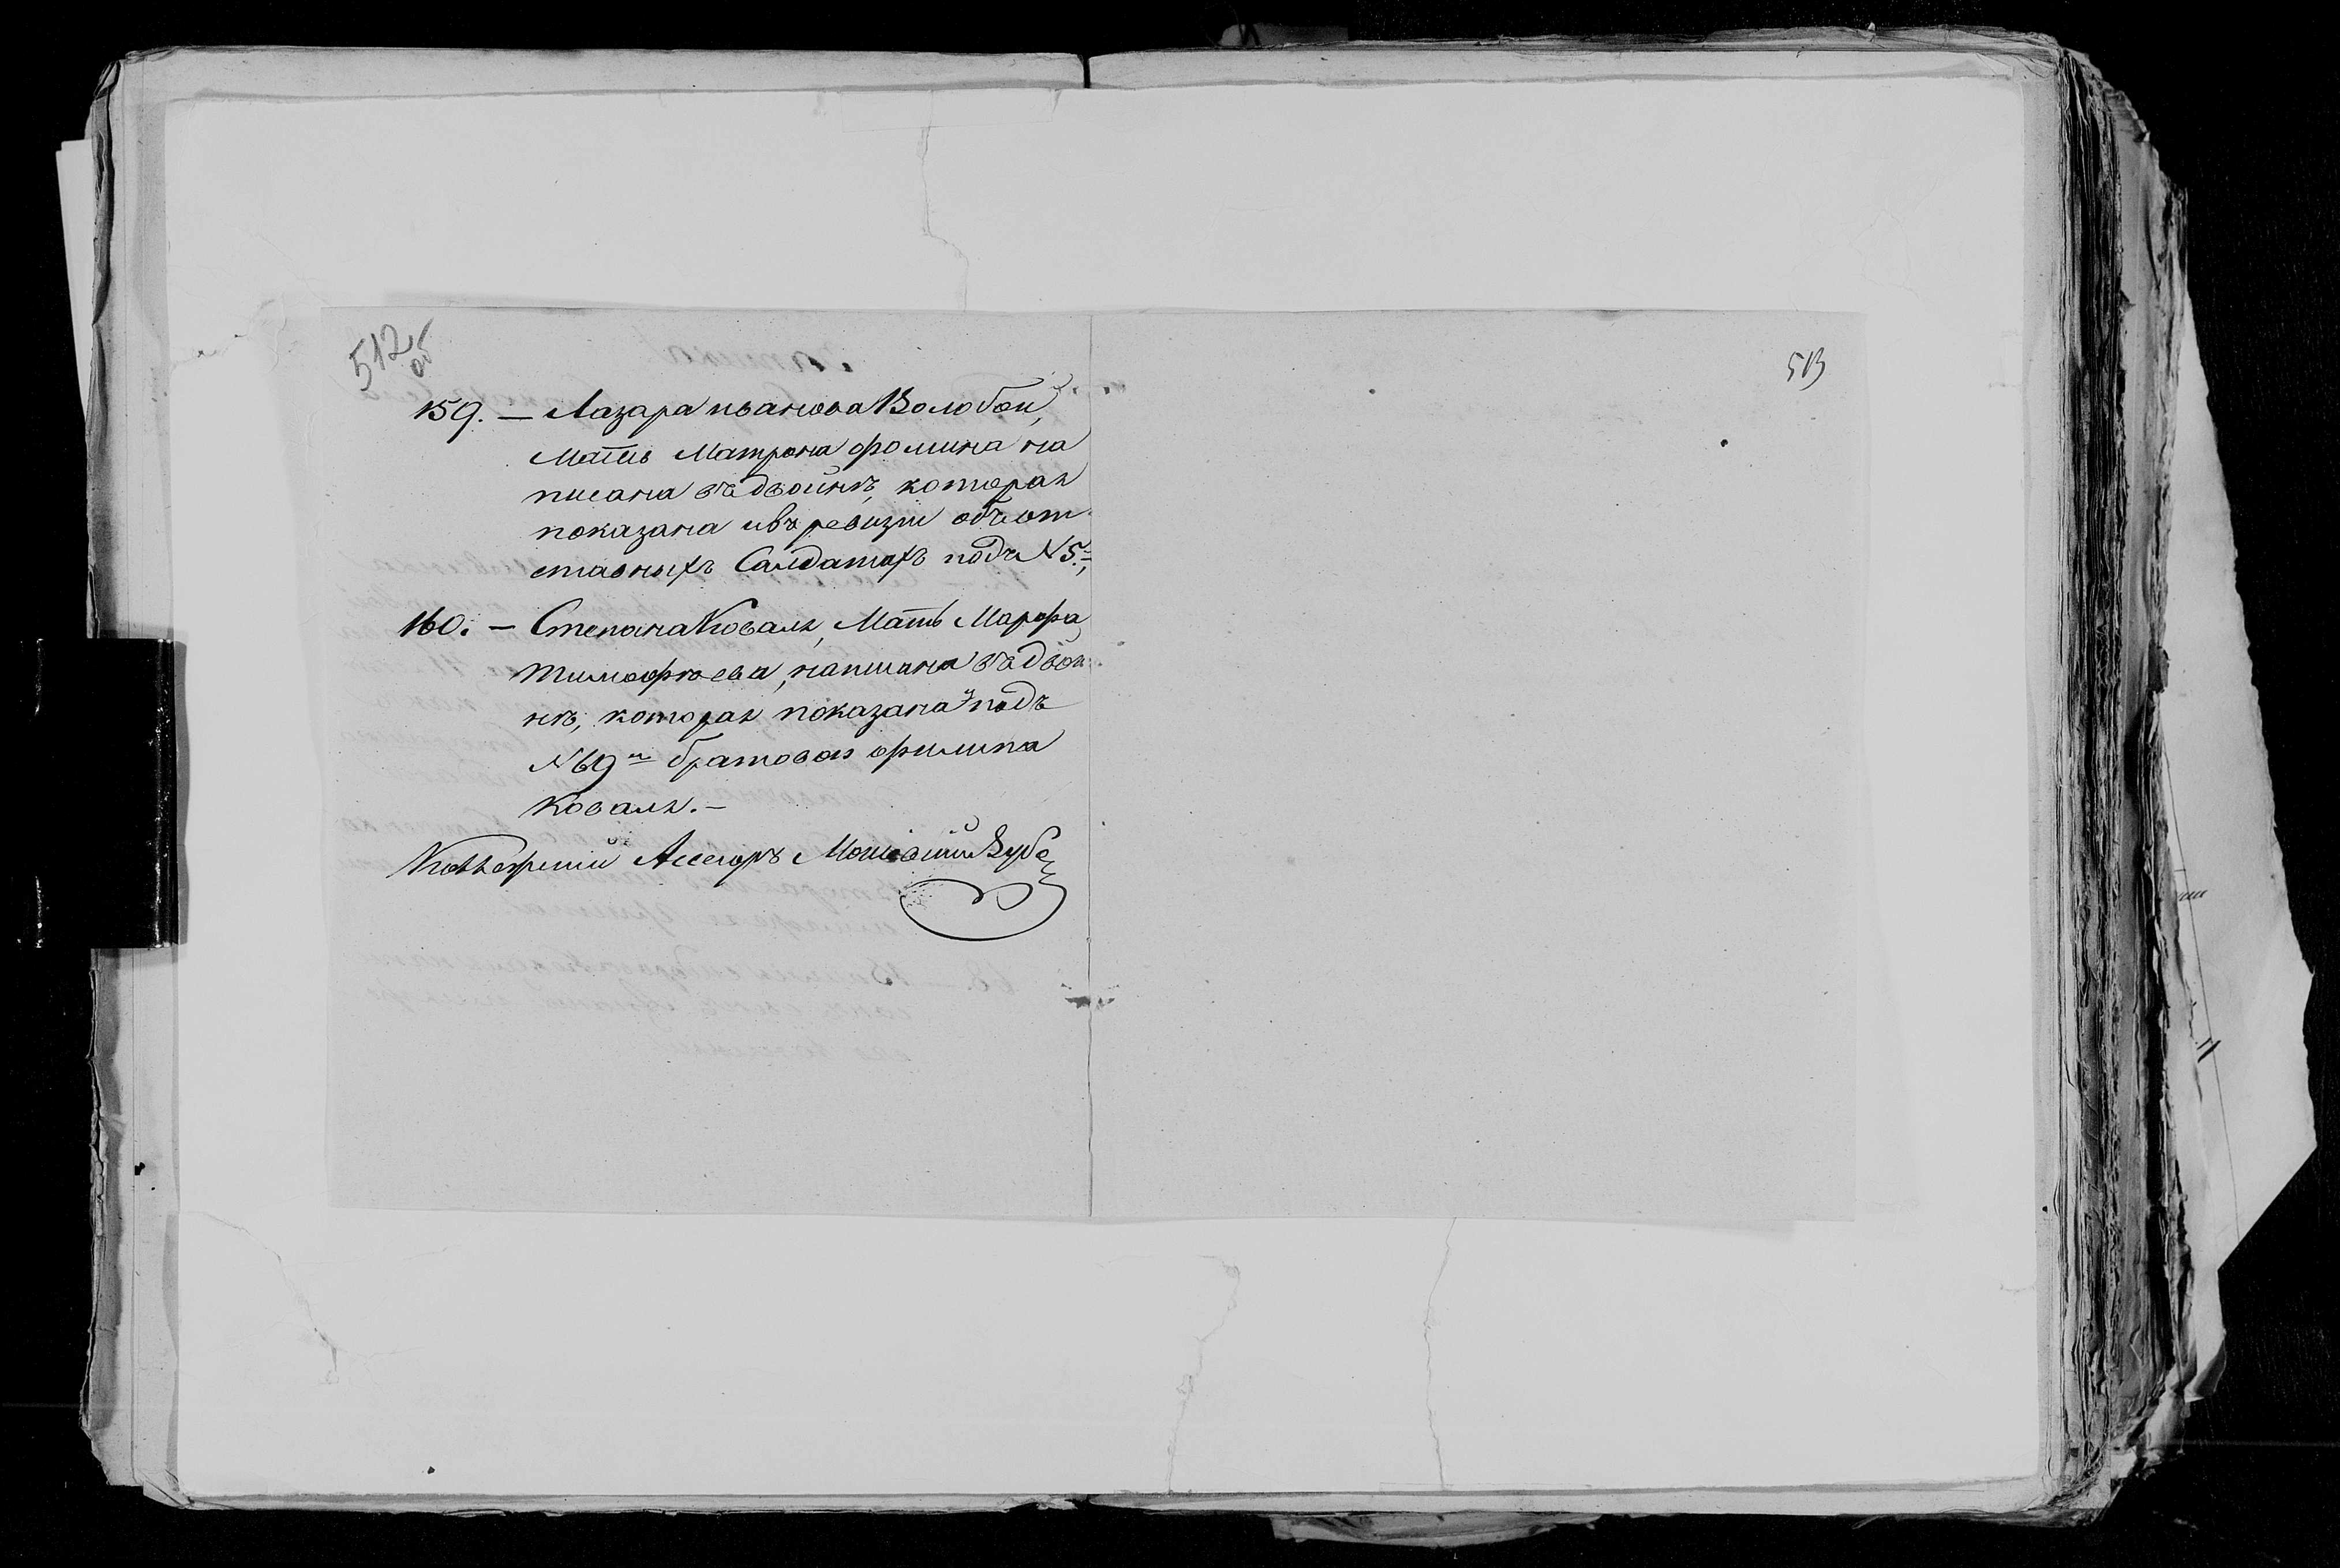 512
об
513
159. — Лазара иванова Волобой,
Мать Матрона фомина на
писана въ двойнѣ, которая
показана и въ ревизіи объ от
ставныхъ Салдатахъ подъ № 5.м,
160. — Степана Коваля, Мать Марфа
тимофѣева, написана въ двой
нѣ, которая показана и подъ
№ 69м братовая филипа
Коваля. —
Коллежскій Ассесоръ